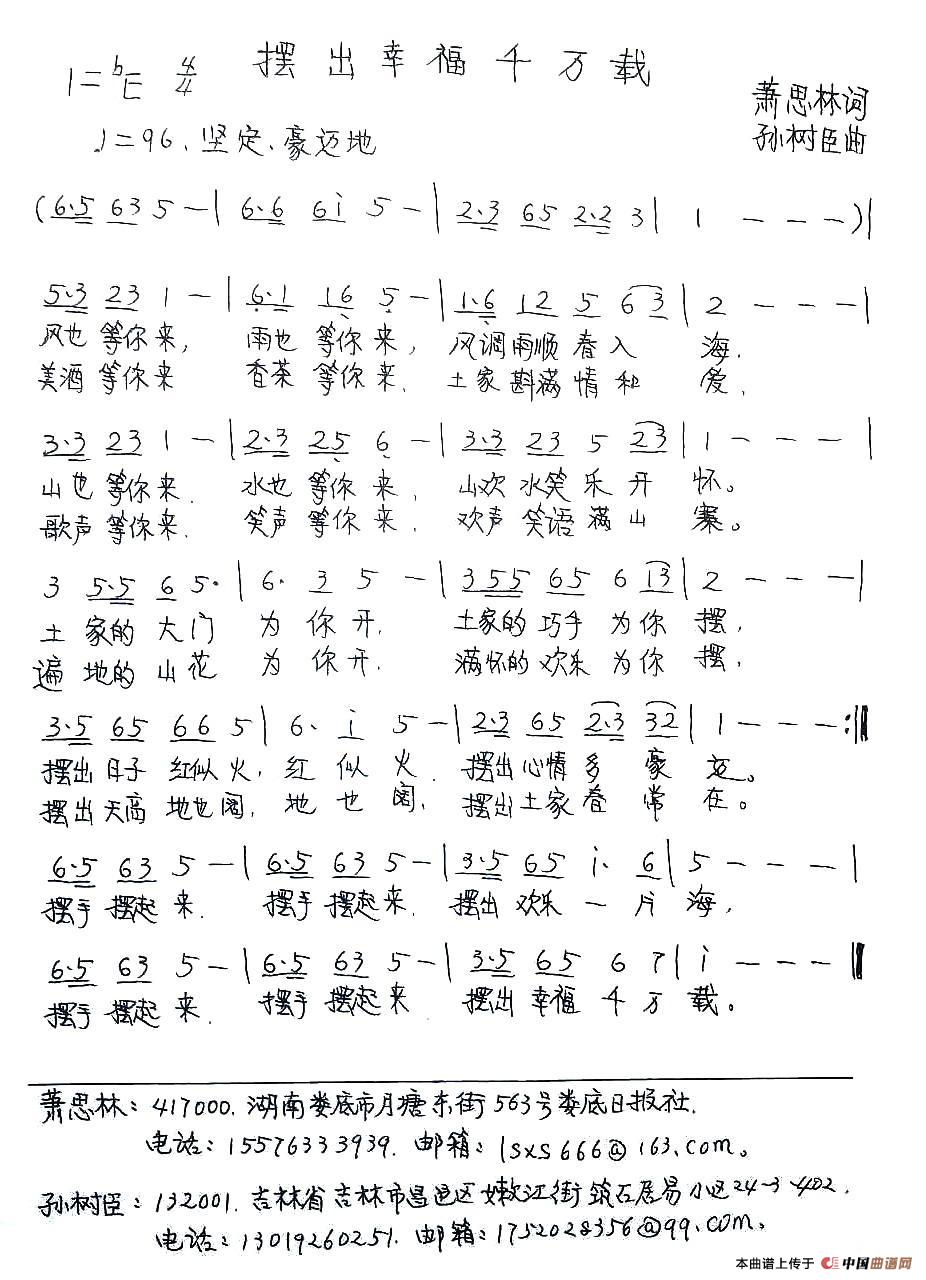 摆出幸福千万载
1=ᵇE 4/4
萧思林词
♩=96、坚定、豪迈地
孙树臣曲
(6·5 63 5 - | 6·6 6i 5 - | 2·3 65 2·2 3 | 1 - - - )|
5·3 23 1 - | 6·1 16 5 - | 1·6 12 5 63 | 2 - - - |
风也等你来, 雨也等你来, 风调雨顺春入海.
美酒等你来 香茶等你来. 土家斟满情和爱,
3·3 23 1 - | 2·3 25 6 - | 3·3 23 5 23 | 1 - - - |
山也等你来. 水也等你来, 山欢水笑乐开怀。
歌声等你来. 笑声等你来. 欢声笑语满山寨。
3 5·5 6 5· | 6· 3 5 - | 3 55 65 6 i3 | 2 - - - |
土家的大门为你开. 土家的巧手为你摆,
遍地的山花为你开. 满怀的欢乐为你摆,
3·5 65 66 5 | 6· i 5 - | 2·3 65 2·3 32 | 1 - - - :‖
摆出日子红似火, 红似火. 摆出心情多豪迈。
摆出天高地也阔, 地也阔, 摆出土家春常在。
6·5 63 5 - | 6·5 63 5 - | 3·5 65 i· 6 | 5 - - - |
摆手摆起来. 摆手摆起来. 摆出欢乐一片海,
6·5 63 5 - | 6·5 63 5 - | 3·5 65 6 7 | i - - - ‖
摆手摆起来. 摆手摆起来 摆出幸福千万载。
萧思林: 417000. 湖南娄底市月塘东街563号娄底日报社.
电话: 15576333939. 邮箱: lsxs666@163.com。
孙树臣: 132001. 吉林省吉林市昌邑区嫩江街筑石居易小区24-3-402.
电话: 13019260251. 邮箱: 1752028356@qq.com.
本曲谱上传于 中国曲谱网